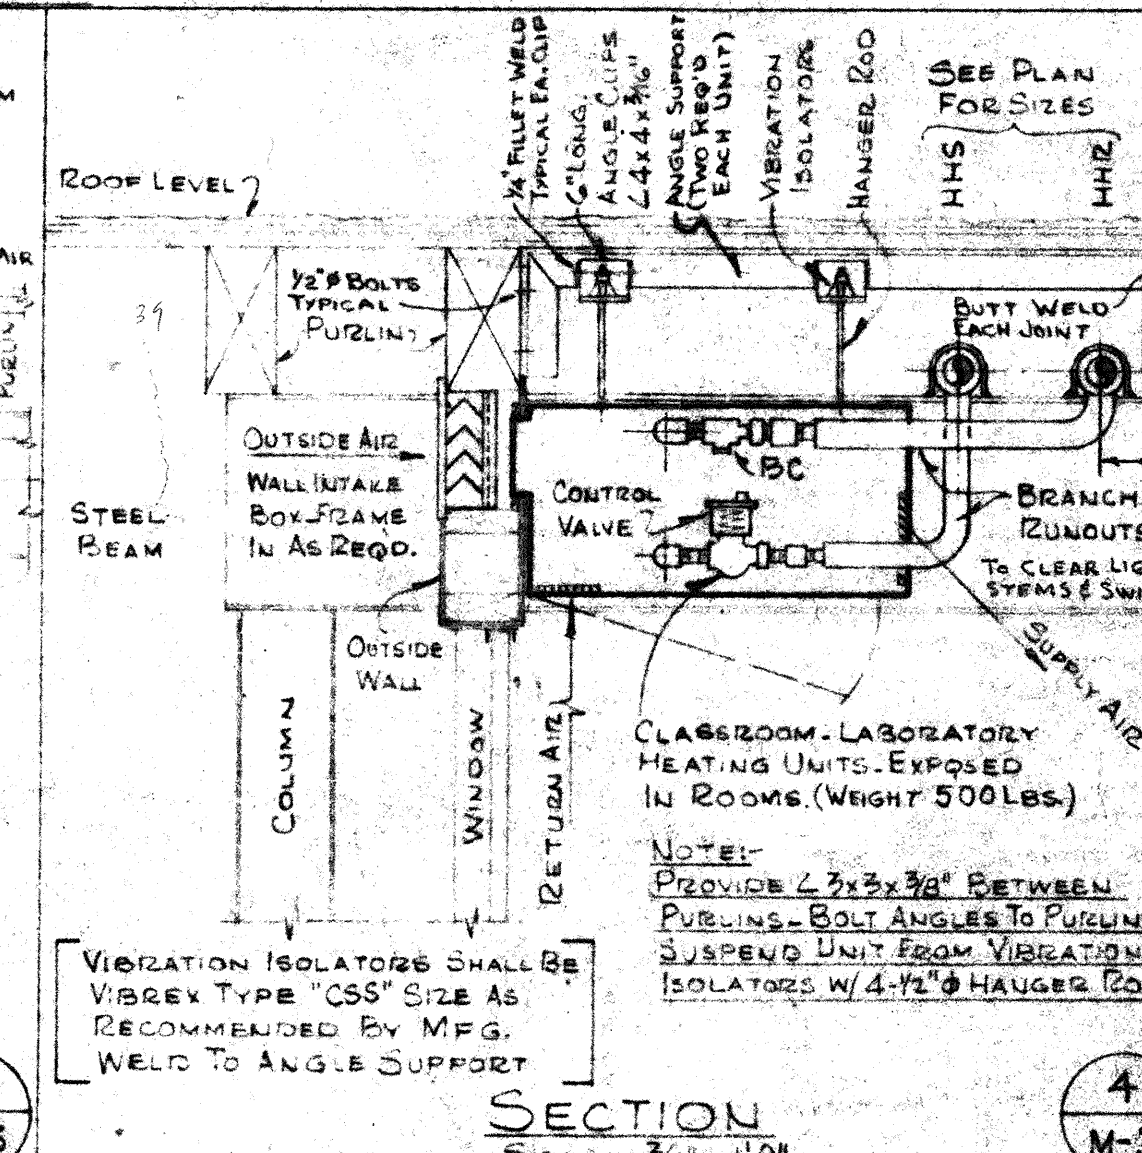 ROOF LEVEL
1/4" FILLET WELD
TYPICAL EA. CLIP
6" LONG.
ANGLE CLIPS
L 4x4x3/16"
ANGLE SUPPORT
(TWO REQ'D
EACH UNIT)
VIBRATION
ISOLATORS
HANGER ROD
SEE PLAN
FOR SIZES
HHS
HHR
AIR
PURLIN
39
1/2"ø BOLTS
TYPICAL
PURLIN
BUTT WELD
EACH JOINT
OUTSIDE AIR
WALL INTAKE
BOX-FRAME
IN AS REQD.
STEEL
BEAM
CONTROL
VALVE
BC
BRANCH
RUNOUTS
TO CLEAR LIG
STEMS & SWI
SUPPLY AIR
OUTSIDE
WALL
COLUMN
WINDOW
RETURN AIR
CLASSROOM-LABORATORY
HEATING UNITS-EXPOSED
IN ROOMS. (WEIGHT 500 LBS.)
NOTE:-
PROVIDE L 3x3x3/8" BETWEEN
PURLINS-BOLT ANGLES TO PURLIN
SUSPEND UNIT FROM VIBRATION
ISOLATORS W/ 4-1/2"ø HANGER RO
VIBRATION ISOLATORS SHALL BE
VIBREX TYPE "CSS" SIZE AS
RECOMMENDED BY MFG.
WELD TO ANGLE SUPPORT
SECTION
4